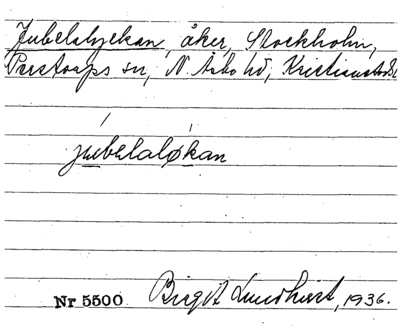 Jubelalyckan, åker, Stockholm,
Perstorps sn, N. Åsbo hd, Kristianst. l.
jubelaløkan
Nr 5500 Birgit Lundkvist, 1936.